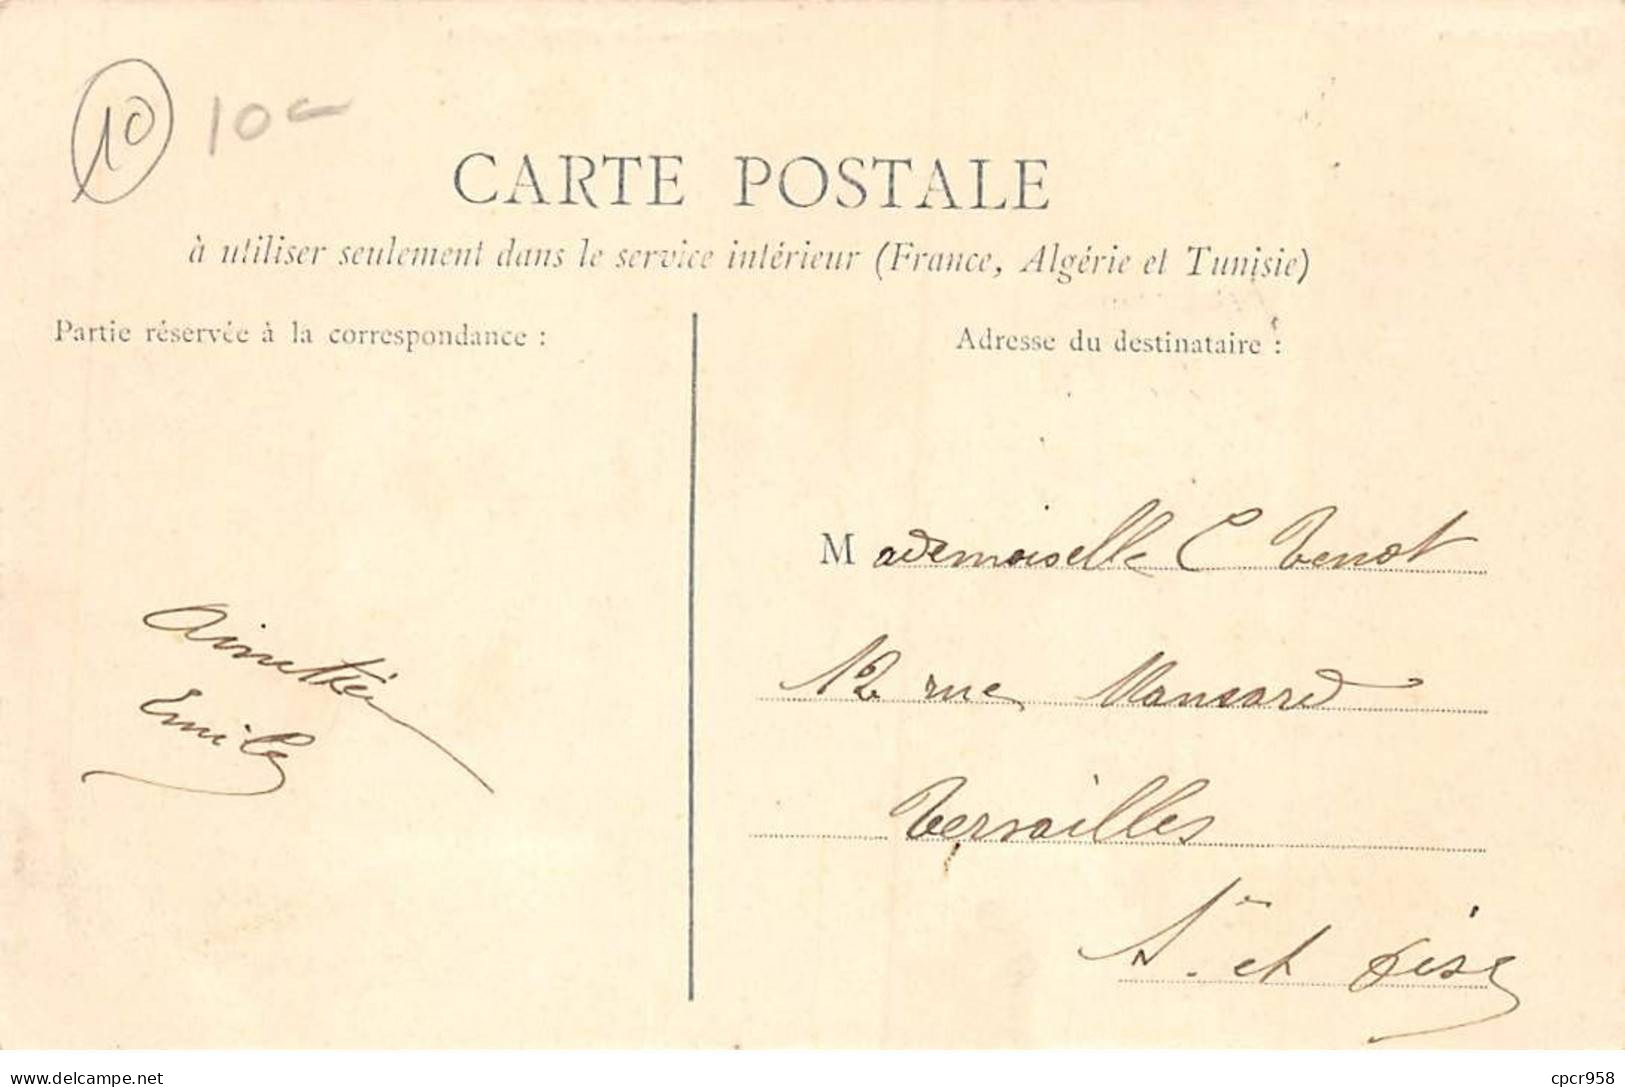 10 10
CARTE POSTALE
à utiliser seulement dans le service intérieur (France, Algérie et Tunisie)
Partie réservée à la correspondance :
Emile
Adresse du destinataire :
Mademoiselle C Venot
12 rue Mansard
Versailles
S. et Oise
www.delcampe.net
cpcr958